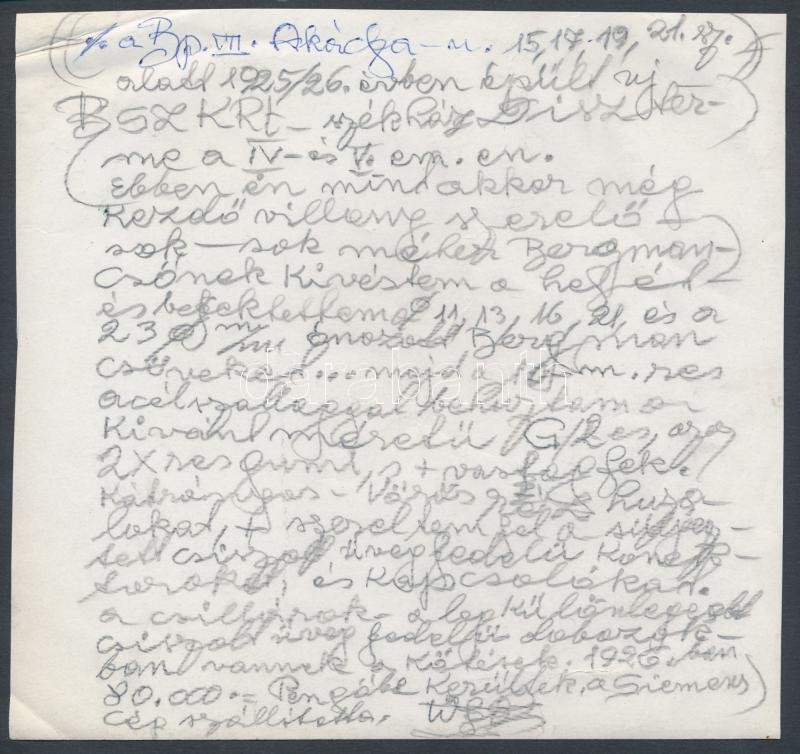 % a Bp. VII. Akácfa-u. 15, 17. 19, 21. sz.
alatt 1925/26. évben épült új
BSZKRt - székház Diszter-
me a IV- és V. em. en.
Ebben én mind akkor még
Kezdő villany szerelő
sok-sok méter Bergman-
Csőnek Kivéstem a helyét-
és befektettem a 11, 13, 16, 21 és a
23 m/m ónozott Bergman
csöveket... majd m. res
acélszallaggal behuztam a
Kivánt méretü G/2 es, az az
2x res gumi, s + vastag fek.
Kátrányos - Vörös réz huza-
lokat, + szereltem fel a süllyesz-
tett csiszolt üvegfedelü Konek-
torokat, és Kapcsolókat.
a csillárok - a leg Különlegesebb
csiszolt üveg fedelü dobozok-
ban vannak a Kötések. 1926. ban
80.000.- Pengőbe Kerültek, a Siemens
cég szállitotta.
darabanth